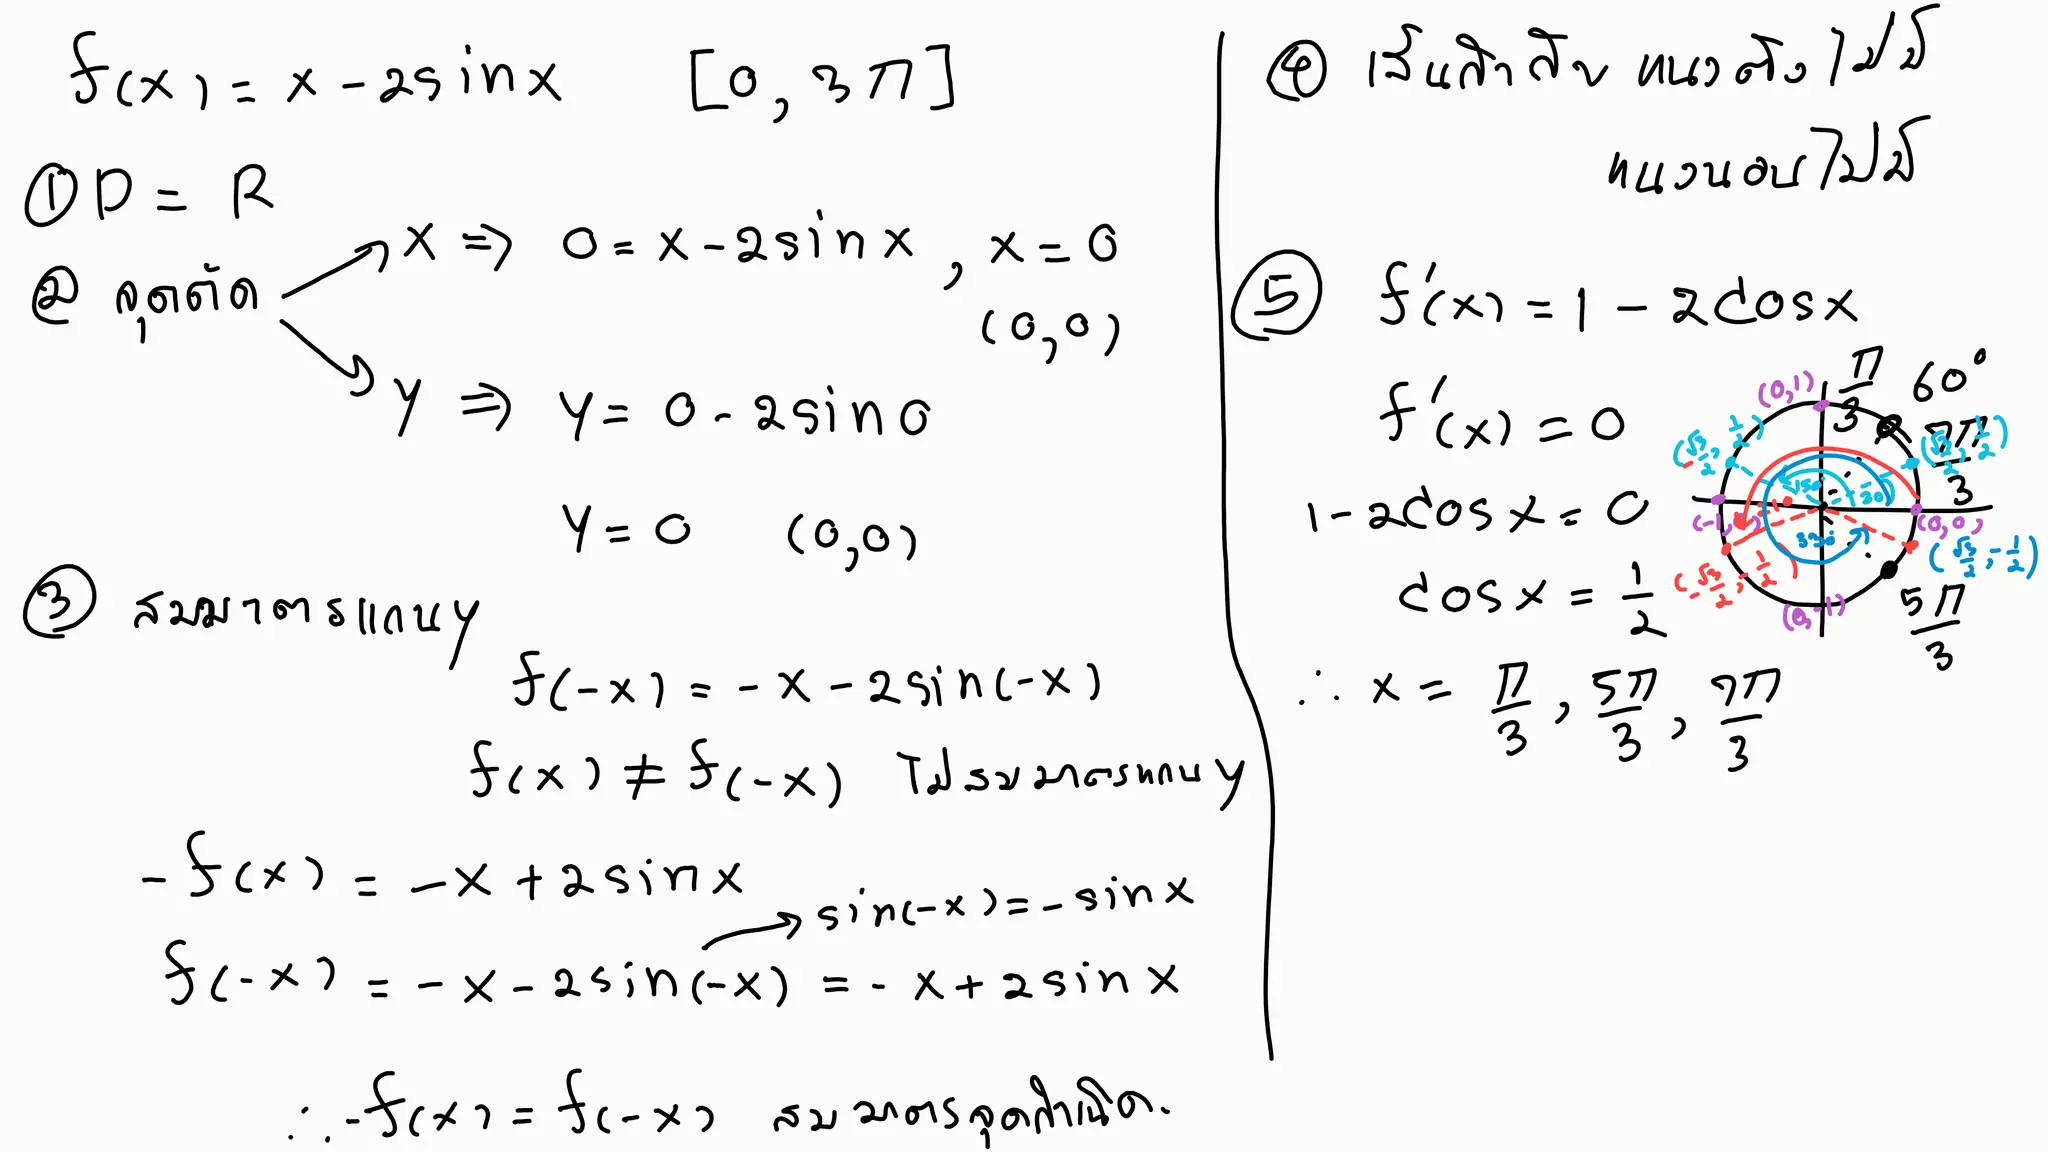 f(x) = x - 2sinx [0, 3π]
① D = R
② จุดตัด
x ⇒ 0 = x - 2sinx , x = 0
(0,0)
y ⇒ y = 0 - 2sin0
y = 0 (0,0)
③ สมมาตรแกนy
f(-x) = -x - 2sin(-x)
f(x) ≠ f(-x) ไม่สมมาตรแกนy
-f(x) = -x + 2sinx
sin(-x) = -sinx
f(-x) = -x - 2sin(-x) = -x + 2sinx
∴ -f(x) = f(-x) สมมาตรจุดกำเนิด.
④ เส้นกำกับ แนวตั้ง ไม่มี
แนวนอนไม่มี
⑤ f'(x) = 1 - 2cosx
f'(x) = 0
1 - 2cosx = 0
cosx = 1/2
∴ x = π/3, 5π/3, 7π/3
(0,1)
π/3 60°
7π/3
(-√3/2, 1/2)
(√3/2, 1/2)
150
30
(0,0)
330
(-√3/2, -1/2)
(√3/2, -1/2)
(0,-1)
5π/3